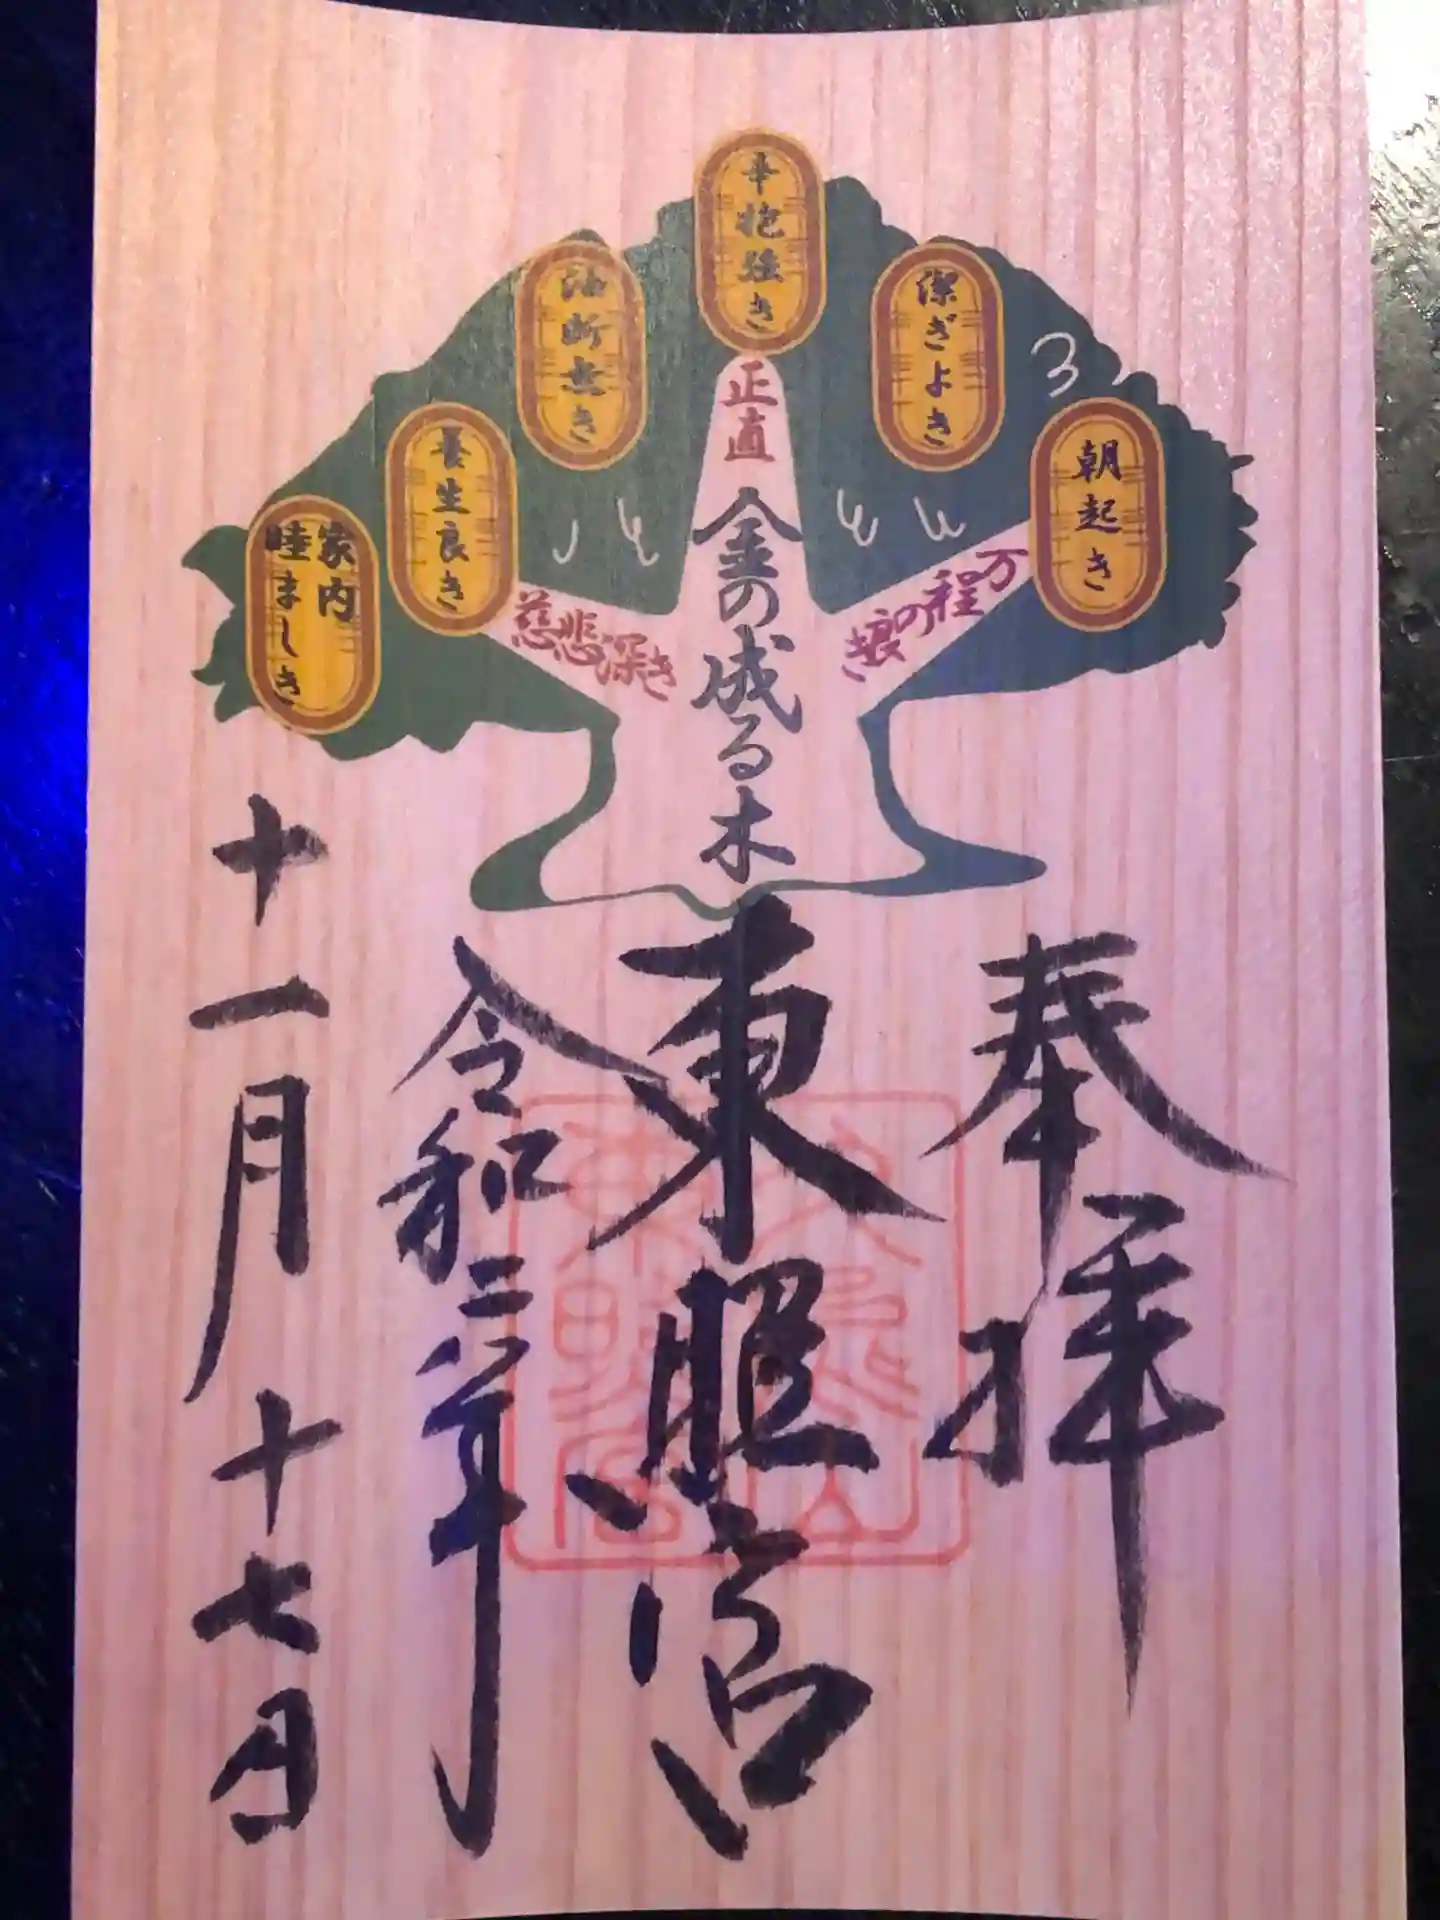 朝起き
潔ぎよき
辛抱強き
油断無き
養生良き
家内
睦ましき
万程の
正直
慈悲深き
金の成る木
奉拝
東照宮
令和三年
十一月十七日